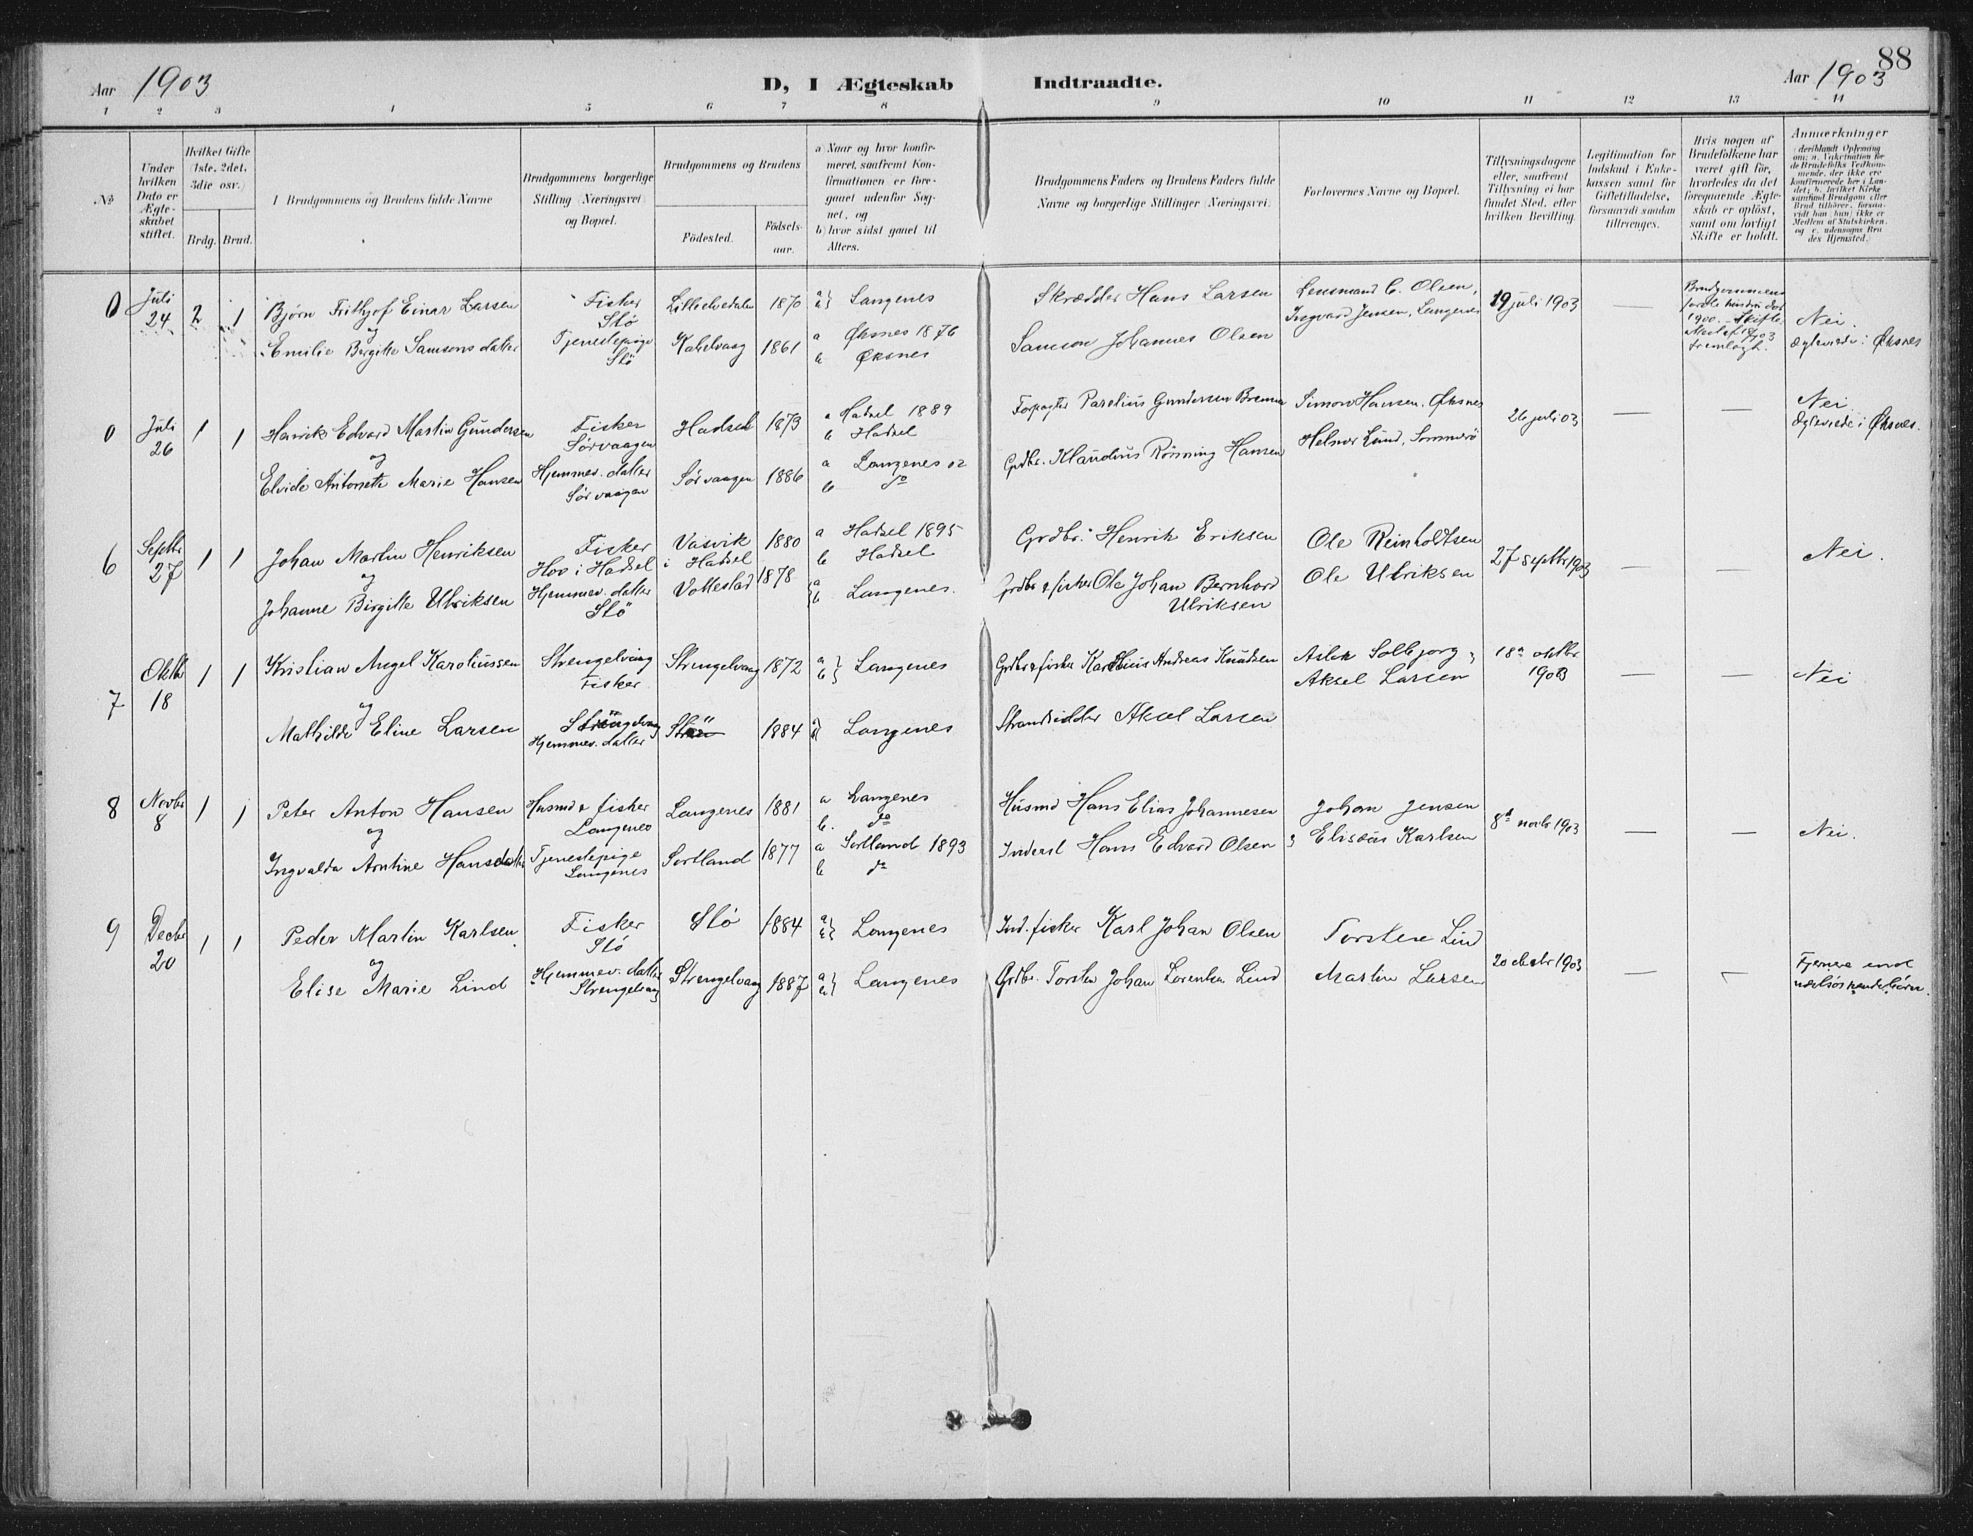 88
Aar 1903 D, I Ægteskab Indtraadte. Aar 1903
1 2 3 4 5 6 7 8 9 10 11 12 13 14
No
Under hvilken Dato er Ægteskabet stiftet.
Hvilket Gifte (1ste, 2det, 3die osv.)
Brdg. Brud.
I Brudgommens og Brudens fulde Navne
Brudgommens borgerlige Stilling (Næringsvei) og Bopæl.
Brudgommens og Brudens
Födested. Födselsaar.
a Naar og hvor konfirmeret, saafremt Konfirmationen er foregaaet udenfor Sognet, og
b) hvor sidst gaaet til Alters.
Brudgommens Faders og Brudens Faders fulde Navne og borgerlige Stillinger (Næringsvei)
Forlovernes Navne og Bopæl.
Tillysningsdagene eller, saafremt Tillysning ei har fundet Sted, efter hvilken Bevilling.
Legitimation for Indskud i Enkekassen samt for Giftetilladelse, forsaavidt saadan tiltrænges.
Hvis nogen af Brudefolkene har været gift før, hvorledes da det foregaaende Ægteskab er opløst, samt om lovligt Skifte er holdt.
Anmærkninger
0 Juli 24 2 1 Bjørn Frithjof Einar Larsen Fisker Stö 1870 a b} Langenes Skrædder Hans Larsen Lensmand C. Olsen, 19 juli 1903 — Brudgommens
Ingvard Jensen, Langenes
1900. Skifte
fremlagt. Nei.
og
Emilie Birgitte Samsonsdatter Tjenestepige Stö 1861 a Øksnes 1876 b Øksnes Samson Johannes Olsen Ægteviede i Øksnes
0 Juli 26 1 1 Henrik Edvard Martin Gundersen Fisker Sørvaagen Hadsel 1873 a Hadsel 1889 b Hadsel Forpagter Parelius Gundersen Simon Hansen, Øksnes 26 juli 03 — — Nei
Ægteviede i Øksnes.
og
Elvide Antonette Marie Hansen Hjemmev. datter Sørvaagen Sørvaagen 1886 a Langenes 02 b do Grdbr. Klaudius Rønning Hansen Helmer Lund, Sommerö
6 Septbr 27 1 1 Johan Martin Henriksen Fisker Hov i Hadsel Vasvik i Hadsel 1880 a Hadsel 1895 b Hadsel Grdbr. Henrik Eriksen Ole Reinholdtsen 27 septbr 1903 — — Nei.
og
Johanne Birgitte Ulriksen Hjemmev. datter Stö Vottestad 1878 a b} Langenes. Grdbr & fisker Ole Johan Bernhard Ulriksen Ole Ulriksen
7 Oktbr 18 1 1 Kristian Angel Karoliussen Strengelvaag Fisker Strengelvaag 1872 a b} Langenes Grdbr & fisker Karolius Andreas Knudsen Aslak Solbjorg 18de oktbr 1903 — — Nei
Aksel Larsen
og
Mathilde Eline Larsen Hjemmev. datter Stö 1884 a b} Langenes Strandsidder Aksel Larsen
8 Novbr 8 1 1 Peter Anton Hansen Husmd & fisker Langenes Langenes 1881 a Langenes b. do Husmd Hans Elias Johannesen Johan Jensen 8de novbr 1903 — — Nei.
og
Ingvalda Arntine Hansdatter Tjenestepige Langenes Sortland 1877 a Sortland 1893 b do Inderst Hans Edvard Olsen Eliseus Karlsen
9 Decbr 20 1 1 Peder Martin Karlsen Fisker Stö Stö 1884 a b} Langenes Ind. fisker Karl Johan Olsen Torsten Lind 20 decbr 1903 — — Fjernere end næstsöskendebörn.
og
Elise Marie Lind Hjemmev. datter Strengelvaag Strengelvaag 1887 a b} Langenes Grdbr. Torsten Johan Lorentsen Lind Martin Larsen